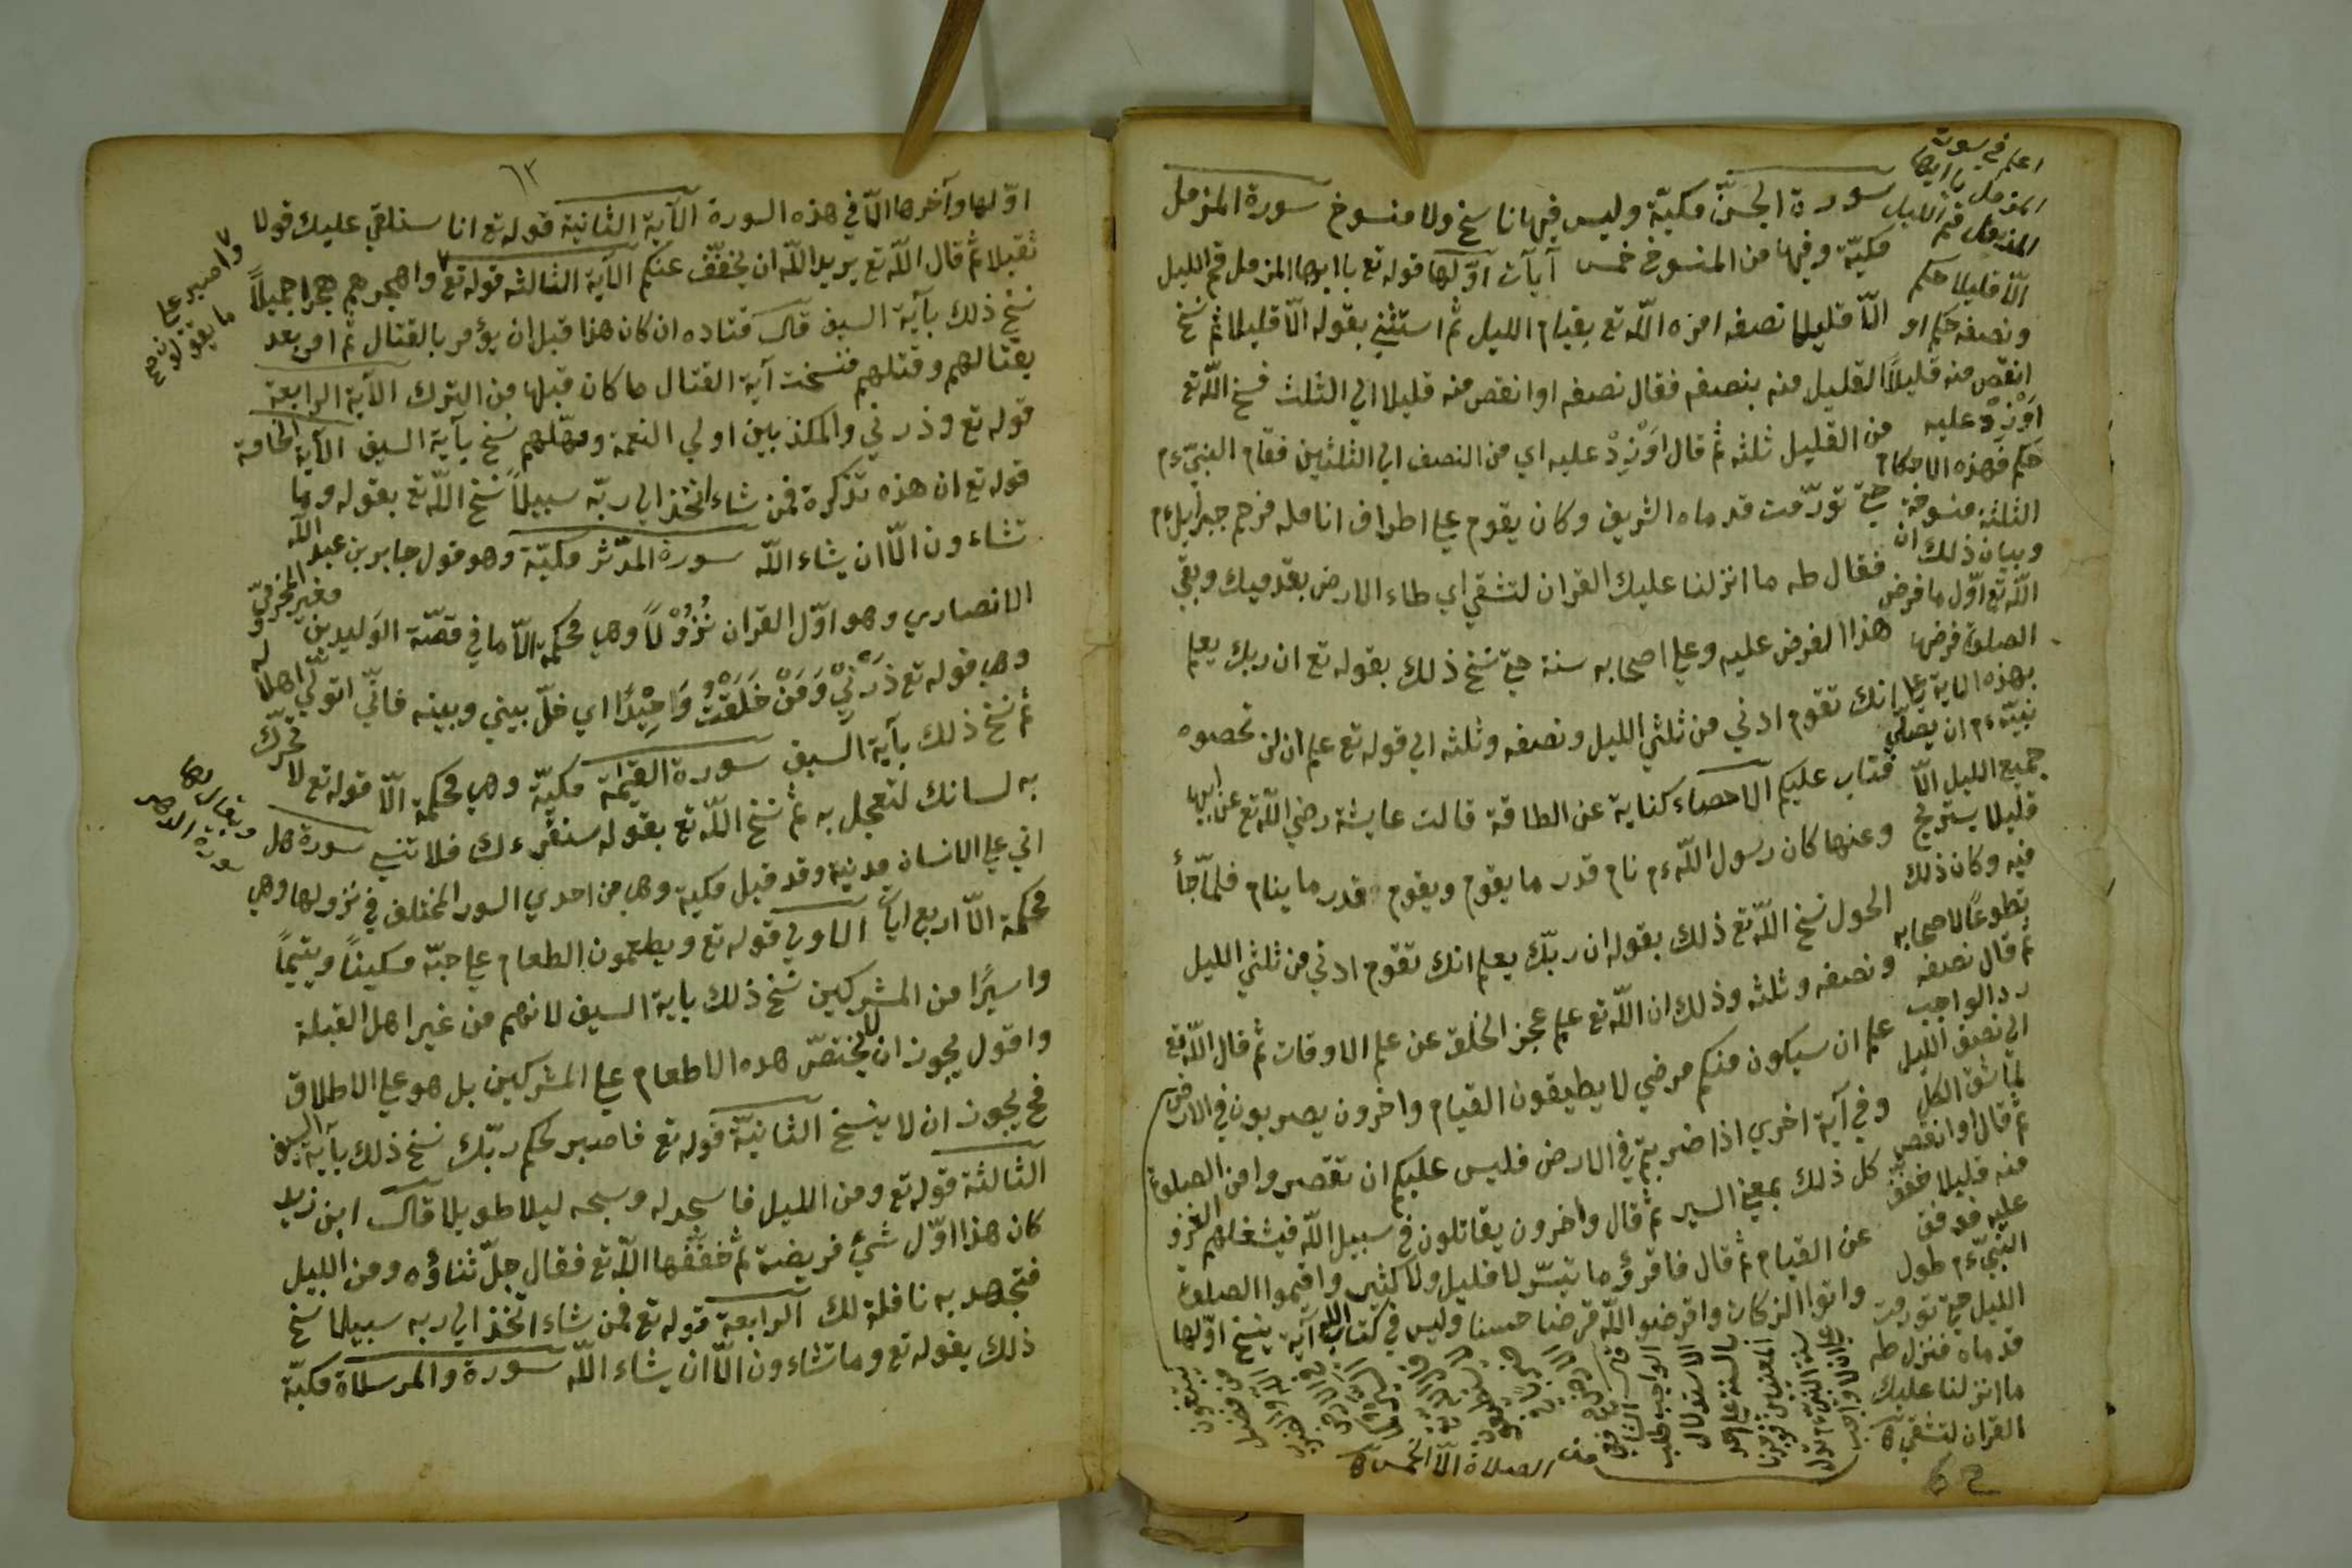 سورة الجنّ مكيّة وليس فيها ناسخ ولا منسوخ سورة المزمل
مكيّة وفيها من المنسوخ خمس آيات اوّلها قوله تع يا ايها المزمل قم الليل
الّا قليلا نصفه امره اللّه تع بقيام الليل ثم استثني بقوله الّا قليلا ثم نسخ
القليل منه بنصفه فقال نصفه او انقص منه قليلا الي الثلث فنسخ اللّه تع
من القليل ثلثه ثم قال اوْزِدْ عليه اي من النصف الي الثلثين فقام النبيّ ءم
حتي تورّمت قدماه الشريف وكان يقوم علي اطراف انامله فرحم جبرايل ءم
فقال طه ما انزلنا عليك القران لتشقي اي طاء الارض بقدميك وبقي
هذا الفرض عليه وعلي اصحابه سنة حتي نسخ ذلك بقوله تع ان ربك يعلم
انك تقوم ادني من ثلثي الليل ونصفه وثلثه الي قوله تع علم ان لن تحصوه
فتاب عليكم الاحصاء كناية عن الطاقة قالت عايشة رضي اللّه تع عن ابيها
وعنها كان رسول اللّه ءم نام قدر ما يقوم ويقوم قدر ما ينام فلمّا جأ
الحول نسخ اللّه تع ذلك بقوله ان ربّك يعلم انك تقوم ادني من ثلثي الليل
ونصفه وثلثه وذلك ان اللّه تع علم عجز الخلق عن علم الاوقات ثم قال اللّه تع
علم ان سيكون منكم مرضي لا يطيقون القيام واخرون يضربون في الارض
وفي آية اخري اذا ضربتم في الارض فليس عليكم ان تقصروا من الصلوة
كل ذلك بمعني السير ثم قال واخرون يقاتلون في سبيل اللّه فيشغلهم الغزو
عن القيام ثم قال فاقرؤا ما تيسّر لا قليل ولا كثير واقيموا الصلوة
واتوا الزكات واقرضوا اللّه قرضا حسنا وليس في كتاب اللّه آية ينسخ اوّلها
اعلم في سورة
المزمل يا ايها
المزمل قم الليل
الّا قليلا حكم
ونصفه حكم او
انقص منه قليلاً
اوْزِدْ عليه
حكم فهذه الاحكام
الثلثة منسوخة
وبيان ذلك ان
اللّه تع اوّل ما فرض
الصلوة فرضها
بهذه الاية علي
نبيّه ءم ان يصلّي
جميع الليل الّا
قليلا يستريح
فيه وكان ذلك
تطوعاً لاصحابه
ثم قال نصفه
رد الواجب
الي نصف الليل
لمّا شقّ الكل
ثم قال او انقص
منه قليلا خفف
عليه فوقف
النبيّ ءم طول
الليل حتي تورمت
قدماه فنزل طه
ما انزلنا عليك
القران لتشقي
من الصلاة الّا الخمس
٦٣
اوّلها وآخرها الّا في هذه السورة الآية الثانية قوله تع انا سنلقي عليك قولا
ثقيلا ثم قال اللّه تع يريد اللّه ان يخفّف عنكم الآية الثالثه قوله تع واهجرهم هجرا جميلاً
واصبر علي ما يقولون
نسخ ذلك بآية السيف قال قتاده ان كان هذا قبل ان يؤمر بالقتال ثم امر بعد
بقتالهم وقتلهم فنسخت آية القتال ما كان قبلها من الترك الآية الرابعة
قوله تع وذرني والمكذبين اولي النعمة ومهّلهم نسخ بآية السيف الآية الخامسة
قوله تع ان هذه تذكرة فمن شاء اتخذ الي ربّه سبيلاً نسخ اللّه تع بقوله وما
تشاءون الّا ان يشاء اللّه سورة المدّثر مكيّة وهو قول جابر بن عبد اللّه
الانصاري وهو اوّل القران نُزُوْلاً وهي محكمة الّا ما في قصّة الوليد بن مغيرة المخزوميّ
وهي قوله تع ذَرْنِيْ وَمَنْ خَلَقْتُ وَحِيْدًا اي خلّ بيني وبينه فانّي اتولّي اهلاكه
ثم نسخ ذلك بآية السيف سورة القيمة مكيّة وهي محكمة الّا قوله تع لا تحرّك
به لسانك لتعجل به ثم نسخ اللّه تع بقوله سنقرءك فلا تنسي سورة هل
ويقال لها سورة الدهر
اتي علي الانسان مدنية وقد قيل مكية وهي من احدي السور المختلف في نزولها وهي
محكمة الّا اربع ايات الاولي قوله تع ويطعمون الطعام علي حبّه مسكيناً ويتيماً
واسيرًا من المشركين نسخ ذلك باية السيف لانهم من غير اهل القبلة
واقول يجوز ان لا يختصّ هذه الاطعام علي المشركين بل هو علي الاطلاق
فح يجوز ان لا ينسخ الثانيّة قوله تع فاصبر لحكم ربّك نسخ ذلك بآية السيف
الثالثة قوله تع ومن الليل فاسجد له وسبحه ليلا طويلا قال ابن زيد
كان هذا اوّل شئ فريضة ثم خفّفها اللّه تع فقال جلّ ثناؤه ومن الليل
فتهجد به نافلة لك الرابعة قوله تع فمن شاء اتخذ الي ربه سبيلا نسخ
ذلك بقوله تع وما تشاءون الّا ان يشاء اللّه سورة والمرسلاة مكيّة